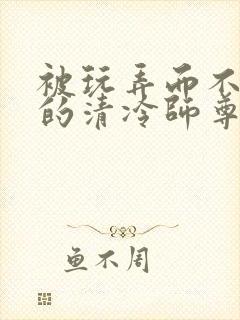 被玩弄而不
的清冷師尊
鱼不周